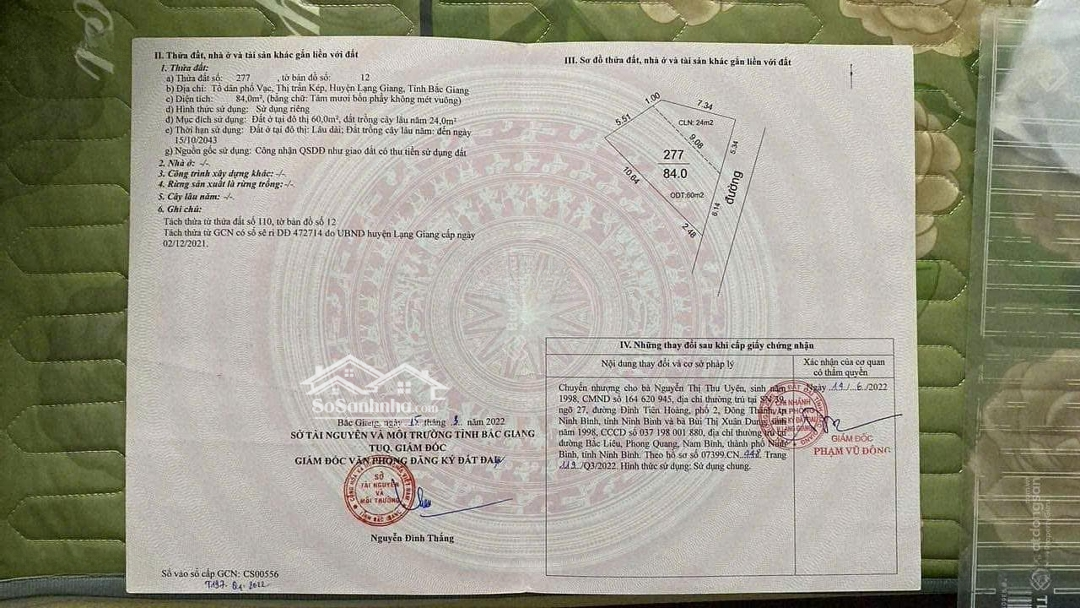 II. Thửa đất, nhà ở và tài sản khác gắn liền với đất
1. Thửa đất:
a) Thửa đất số: 277 , tờ bản đồ số: 12
b) Địa chỉ: Tổ dân phố Vạc, Thị trấn Kép, Huyện Lạng Giang, Tỉnh Bắc Giang
c) Diện tích: 84,0m², (bằng chữ: Tám mươi bốn phẩy không mét vuông)
d) Hình thức sử dụng: Sử dụng riêng
đ) Mục đích sử dụng: Đất ở tại đô thị 60,0m², đất trồng cây lâu năm 24,0m²
e) Thời hạn sử dụng: Đất ở tại đô thị: Lâu dài; Đất trồng cây lâu năm: đến ngày
15/10/2043
g) Nguồn gốc sử dụng: Công nhận QSDĐ như giao đất có thu tiền sử dụng đất
2. Nhà ở: -/-
3. Công trình xây dựng khác: -/-
4. Rừng sản xuất là rừng trồng: -/-
5. Cây lâu năm: -/-
6. Ghi chú:
Tách thửa từ thửa đất số 110, tờ bản đồ số 12
Tách thửa từ GCN có số sê ri DĐ 472714 do UBND huyện Lạng Giang cấp ngày
02/12/2021.
SoSanhnha.com
Bắc Giang, ngày 15 tháng 3 năm 2022
SỞ TÀI NGUYÊN VÀ MÔI TRƯỜNG TỈNH BẮC GIANG
TUQ. GIÁM ĐỐC
GIÁM ĐỐC VĂN PHÒNG ĐĂNG KÝ ĐẤT ĐAI
SỞ
TÀI NGUYÊN
VÀ
MÔI TRƯỜNG
Nguyễn Đình Thắng
Số vào sổ cấp GCN: CS00556
III. Sơ đồ thửa đất, nhà ở và tài sản khác gắn liền với đất
1.00
7.34
5.51
CLN: 24m2
9.08
5.34
277
84.0
10.64
đường
ODT:60m2
6.14
2.48
IV. Những thay đổi sau khi cấp giấy chứng nhận
Nội dung thay đổi và cơ sở pháp lý
Xác nhận của cơ quan
có thẩm quyền
Chuyển nhượng cho bà Nguyễn Thị Thu Uyên, sinh năm
1998, CMND số 164 620 945, địa chỉ thường trú tại SN 39,
ngõ 27, đường Đinh Tiên Hoàng, phố 2, Đông Thành,
Ninh Bình, tỉnh Ninh Bình và bà Bùi Thị Xuân Dung, sinh
năm 1998, CCCD số 037 198 001 880, địa chỉ thường trú
đường Bắc Liêu, Phong Quang, Nam Bình, thành phố Ninh
Bình, tỉnh Ninh Bình. Theo hồ sơ số 07399.CN.998. Trang
119./Q3/2022. Hình thức sử dụng: Sử dụng chung.
Ngày 19/6/2022
GIÁM ĐỐC
PHẠM VŨ ĐÔNG